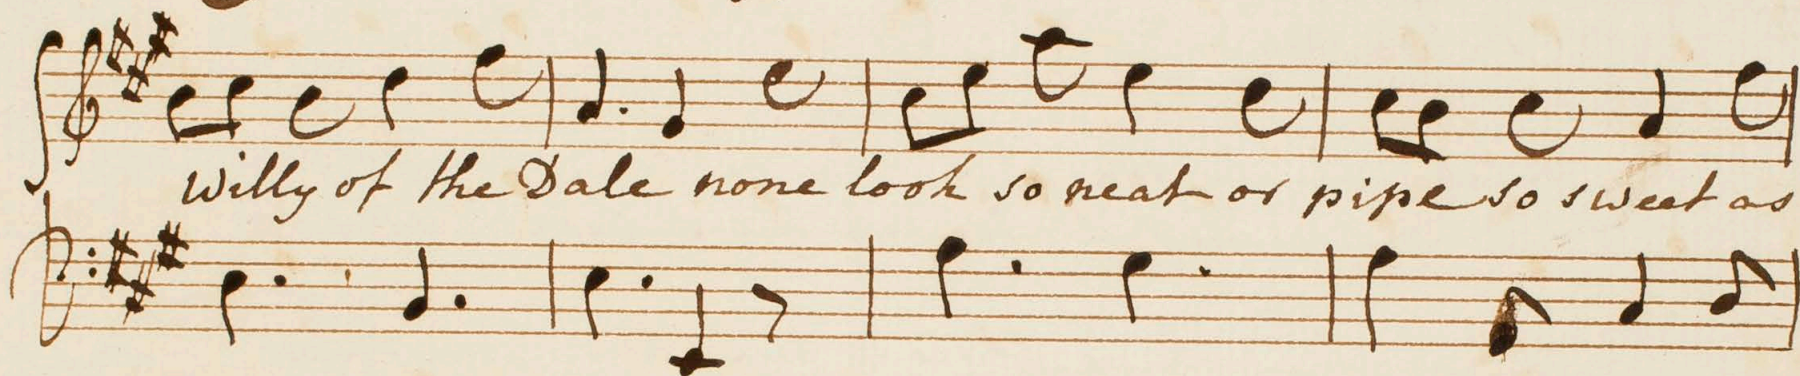 willy of the Dale none look so neat or pipe so sweet as